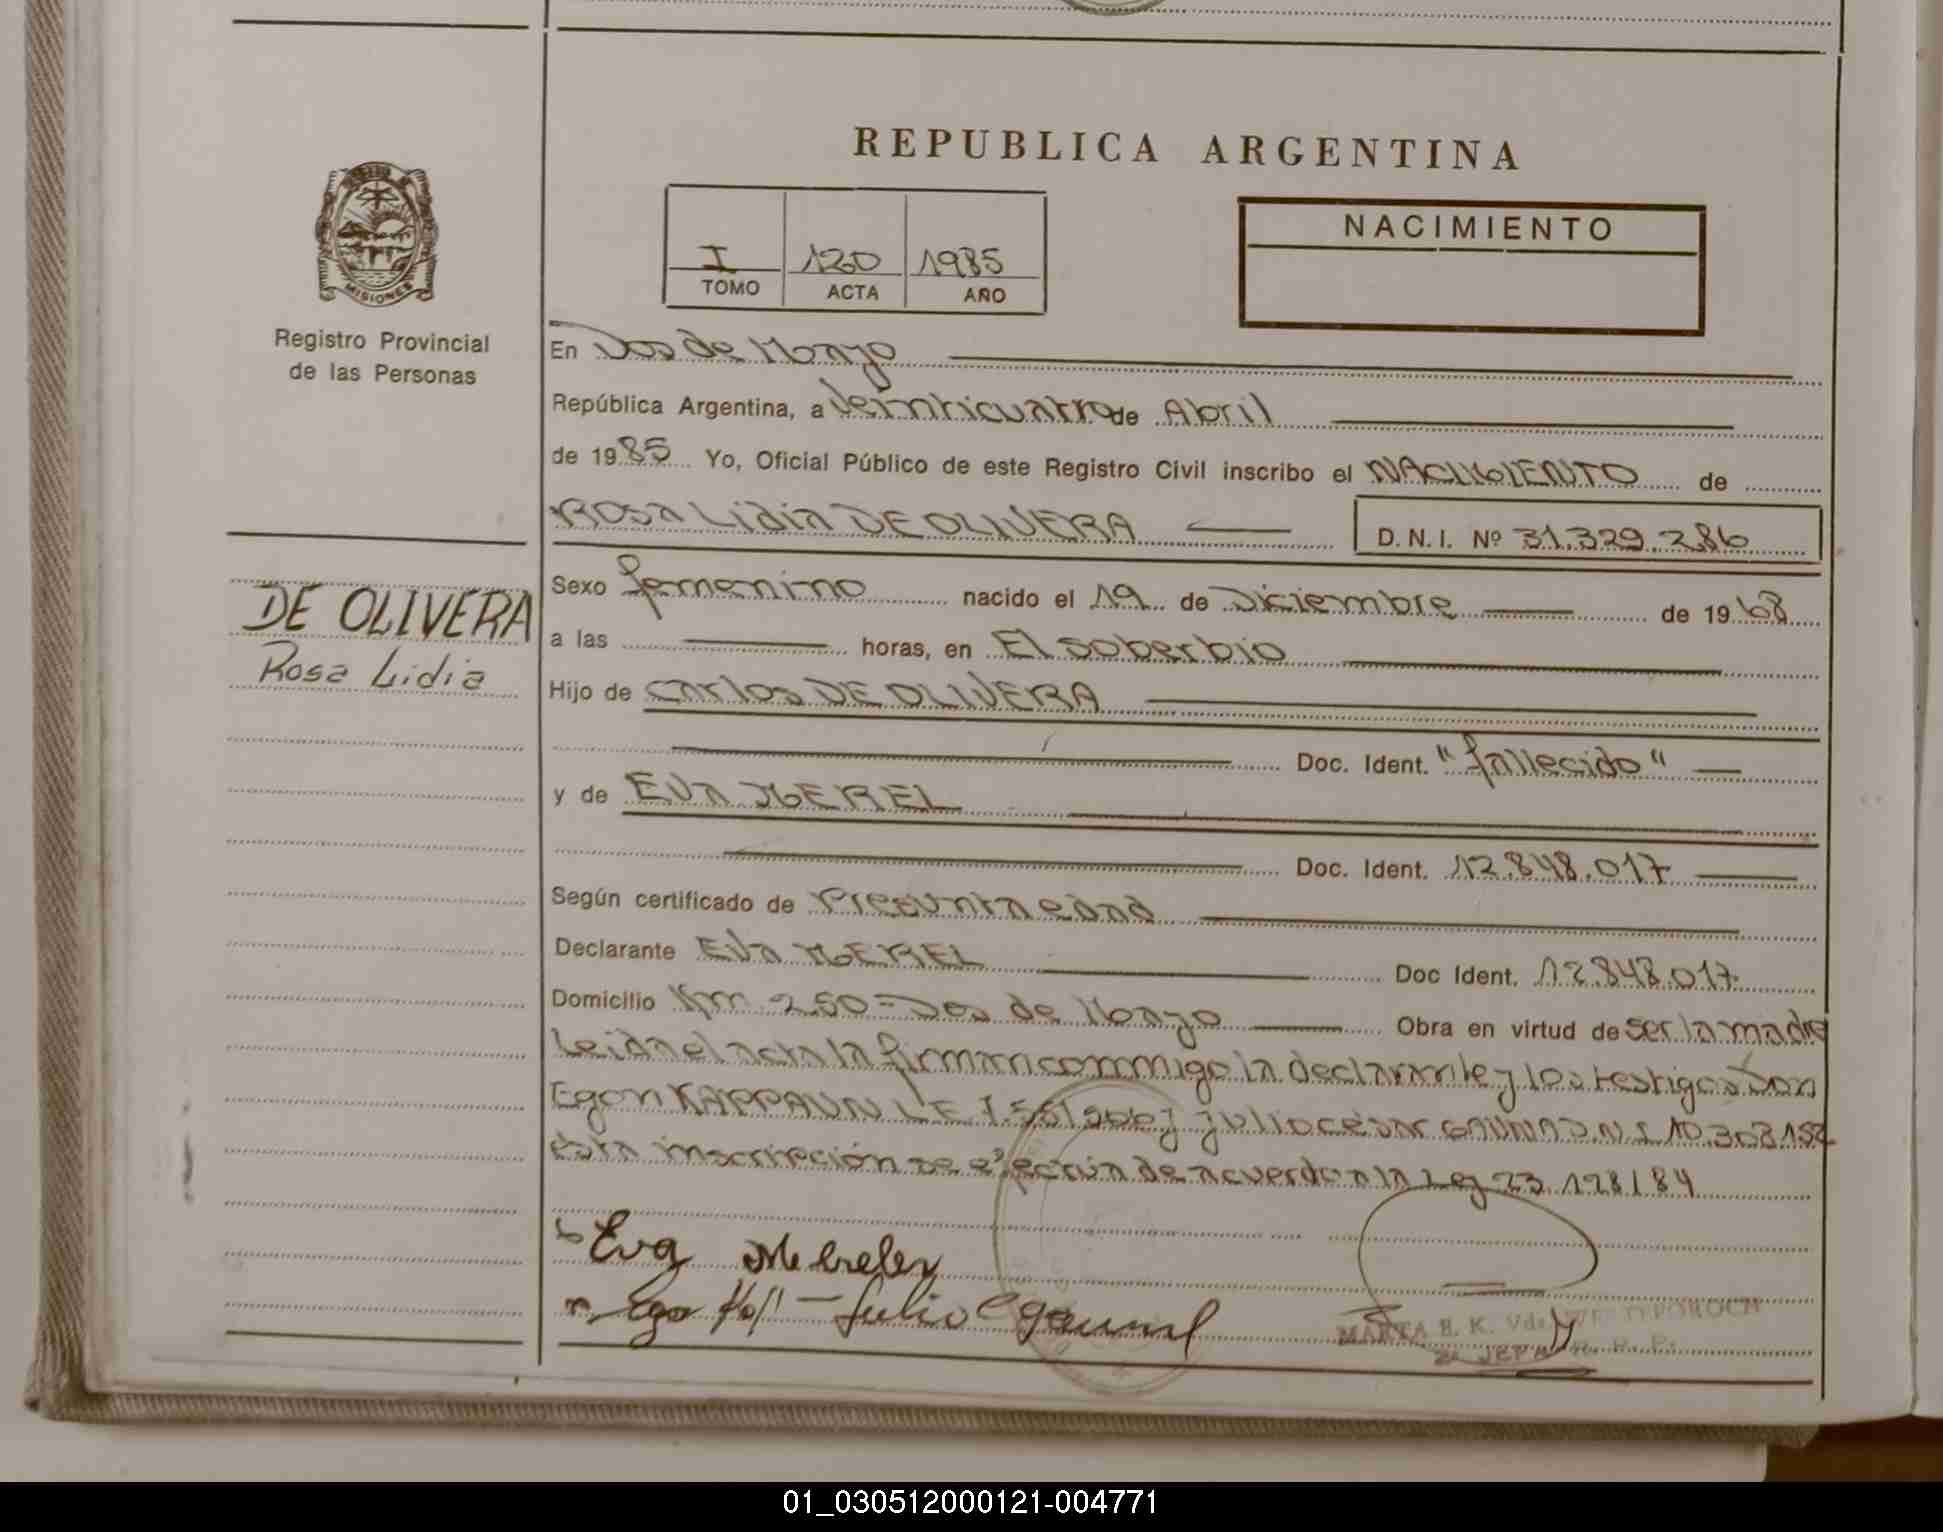 REPUBLICA ARGENTINA
I 120 1985
TOMO ACTA AÑO
NACIMIENTO
MISIONES
Registro Provincial
de las Personas
En Dos de Mayo
República Argentina, a veinticuatro de Abril
de 1985 Yo, Oficial Público de este Registro Civil inscribo el NACIMIENTO de
ROSA Lidia DE OLIVERA D.N.I. Nº 31.329.286
DE OLIVERA
Rosa Lidia
Sexo femenino nacido el 19 de Diciembre de 1968
a las horas, en El soberbio
Hijo de Carlos DE OLIVERA
Doc. Ident. "fallecido"
y de Eva MEREL
Doc. Ident. 12.848.017
Según certificado de Presunta edad
Declarante Eva MEREL Doc Ident. 12.848.017
Domicilio Km 250=Dos de Mayo Obra en virtud de ser la madre
Leida el acta la firman conmigo la declarante y los testigos Don
Egon KAPPAUN L E 7.551 y Julio cesar D.N.I. 10.308.152
esta inscripción se efectúa de acuerdo a la Ley 23.128/84
Eva
Julio
MARTA E. K. Vda.